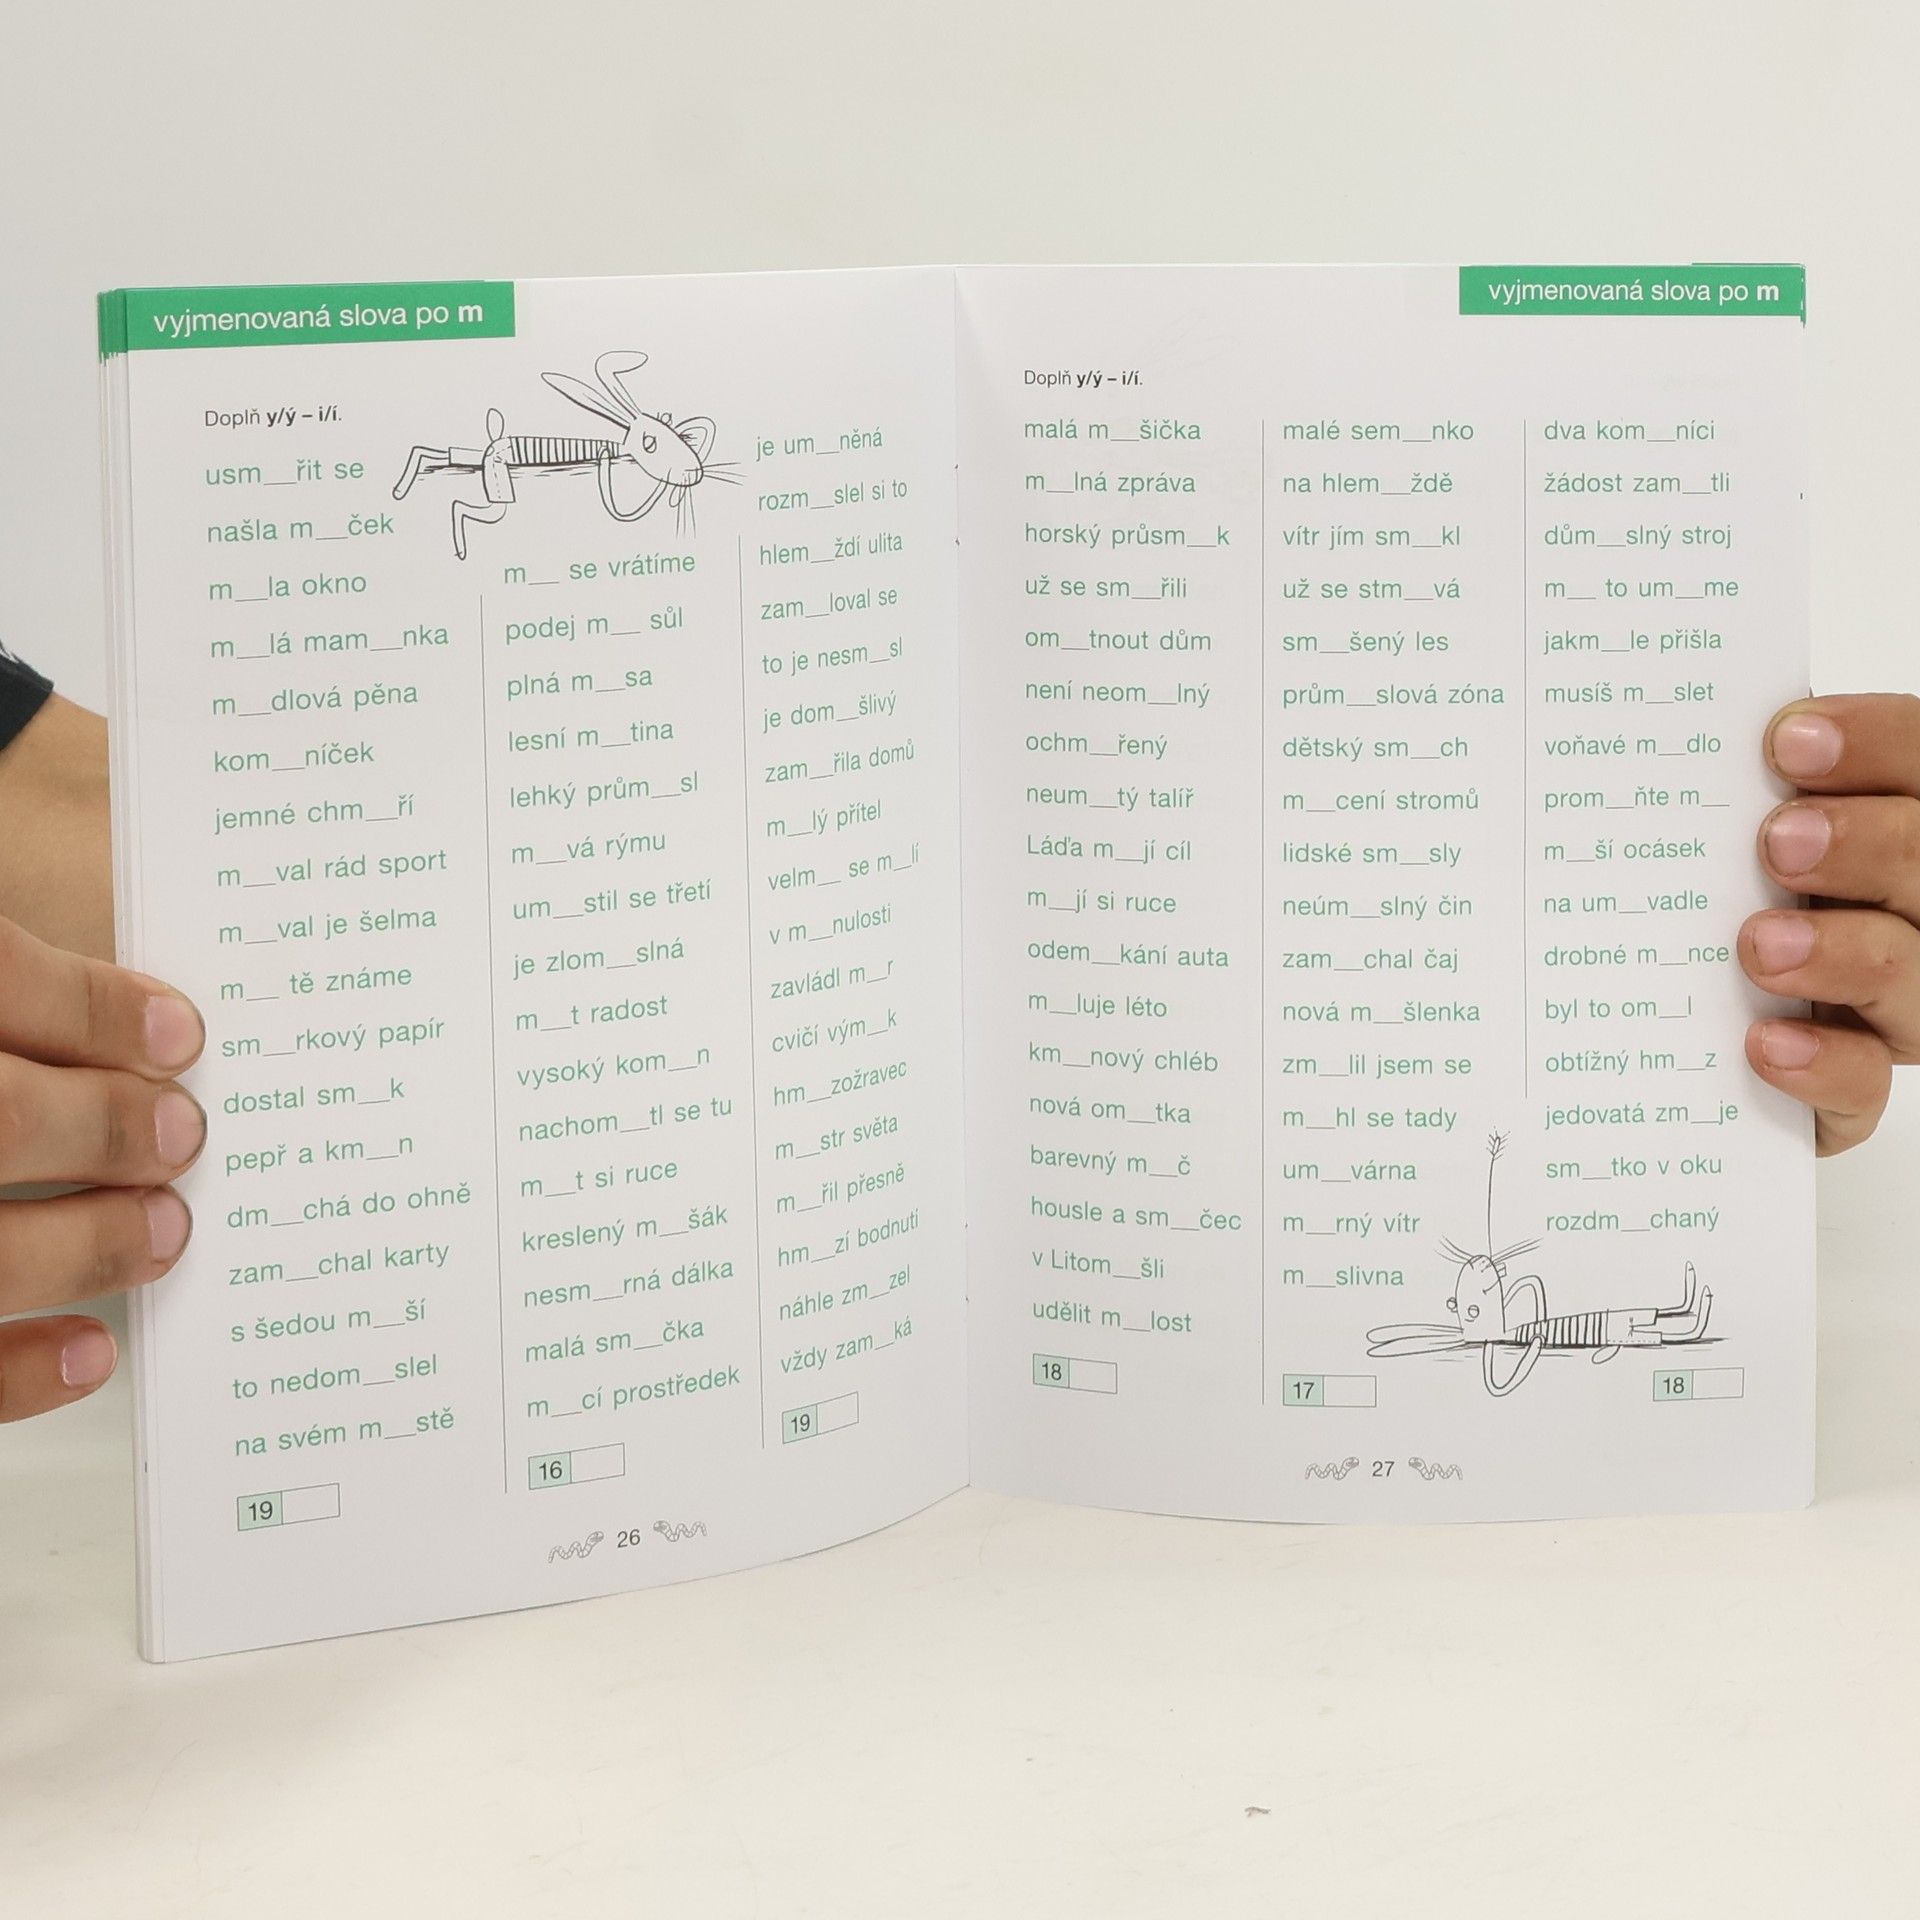 vyjmenovaná slova po m
Doplň y/ý – i/í.
usm__řit se
našla m__ček
m__la okno
m__lá mam__nka
m__dlová pěna
kom__níček
jemné chm__ří
m__val rád sport
m__val je šelma
m__ tě známe
sm__rkový papír
dostal sm__k
pepř a km__n
dm__chá do ohně
zam__chal karty
s šedou m__ší
to nedom__slel
na svém m__stě
19
m__ se vrátíme
podej m__ sůl
plná m__sa
lesní m__tina
lehký prům__sl
m__vá rýmu
um__stil se třetí
je zlom__slná
m__t radost
vysoký kom__n
nachom__tl se tu
m__t si ruce
kreslený m__šák
nesm__rná dálka
malá sm__čka
m__cí prostředek
16
je um__něná
rozm__slel si to
hlem__ždí ulita
zam__loval se
to je nesm__sl
je dom__šlivý
zam__řila domů
m__lý přítel
velm__ se m__lí
v m__nulosti
zavládl m__r
cvičí vým__k
hm__zožravec
m__str světa
m__řil přesně
hm__zí bodnutí
náhle zm__zel
vždy zam__ká
19
26
vyjmenovaná slova po m
Doplň y/ý – i/í.
malá m__šička
m__lná zpráva
horský průsm__k
už se sm__řili
om__tnout dům
není neom__lný
ochm__řený
neum__tý talíř
Láďa m__jí cíl
m__jí si ruce
odem__kání auta
m__luje léto
km__nový chléb
nová om__tka
barevný m__č
housle a sm__čec
v Litom__šli
udělit m__lost
18
malé sem__nko
na hlem__ždě
vítr jím sm__kl
už se stm__vá
sm__šený les
prům__slová zóna
dětský sm__ch
m__cení stromů
lidské sm__sly
neúm__slný čin
zam__chal čaj
nová m__šlenka
zm__lil jsem se
m__hl se tady
um__várna
m__rný vítr
m__slivna
17
dva kom__níci
žádost zam__tli
dům__slný stroj
m__ to um__me
jakm__le přišla
musíš m__slet
voňavé m__dlo
prom__ňte m__
m__ší ocásek
na um__vadle
drobné m__nce
byl to om__l
obtížný hm__z
jedovatá zm__je
sm__tko v oku
rozdm__chaný
18
27